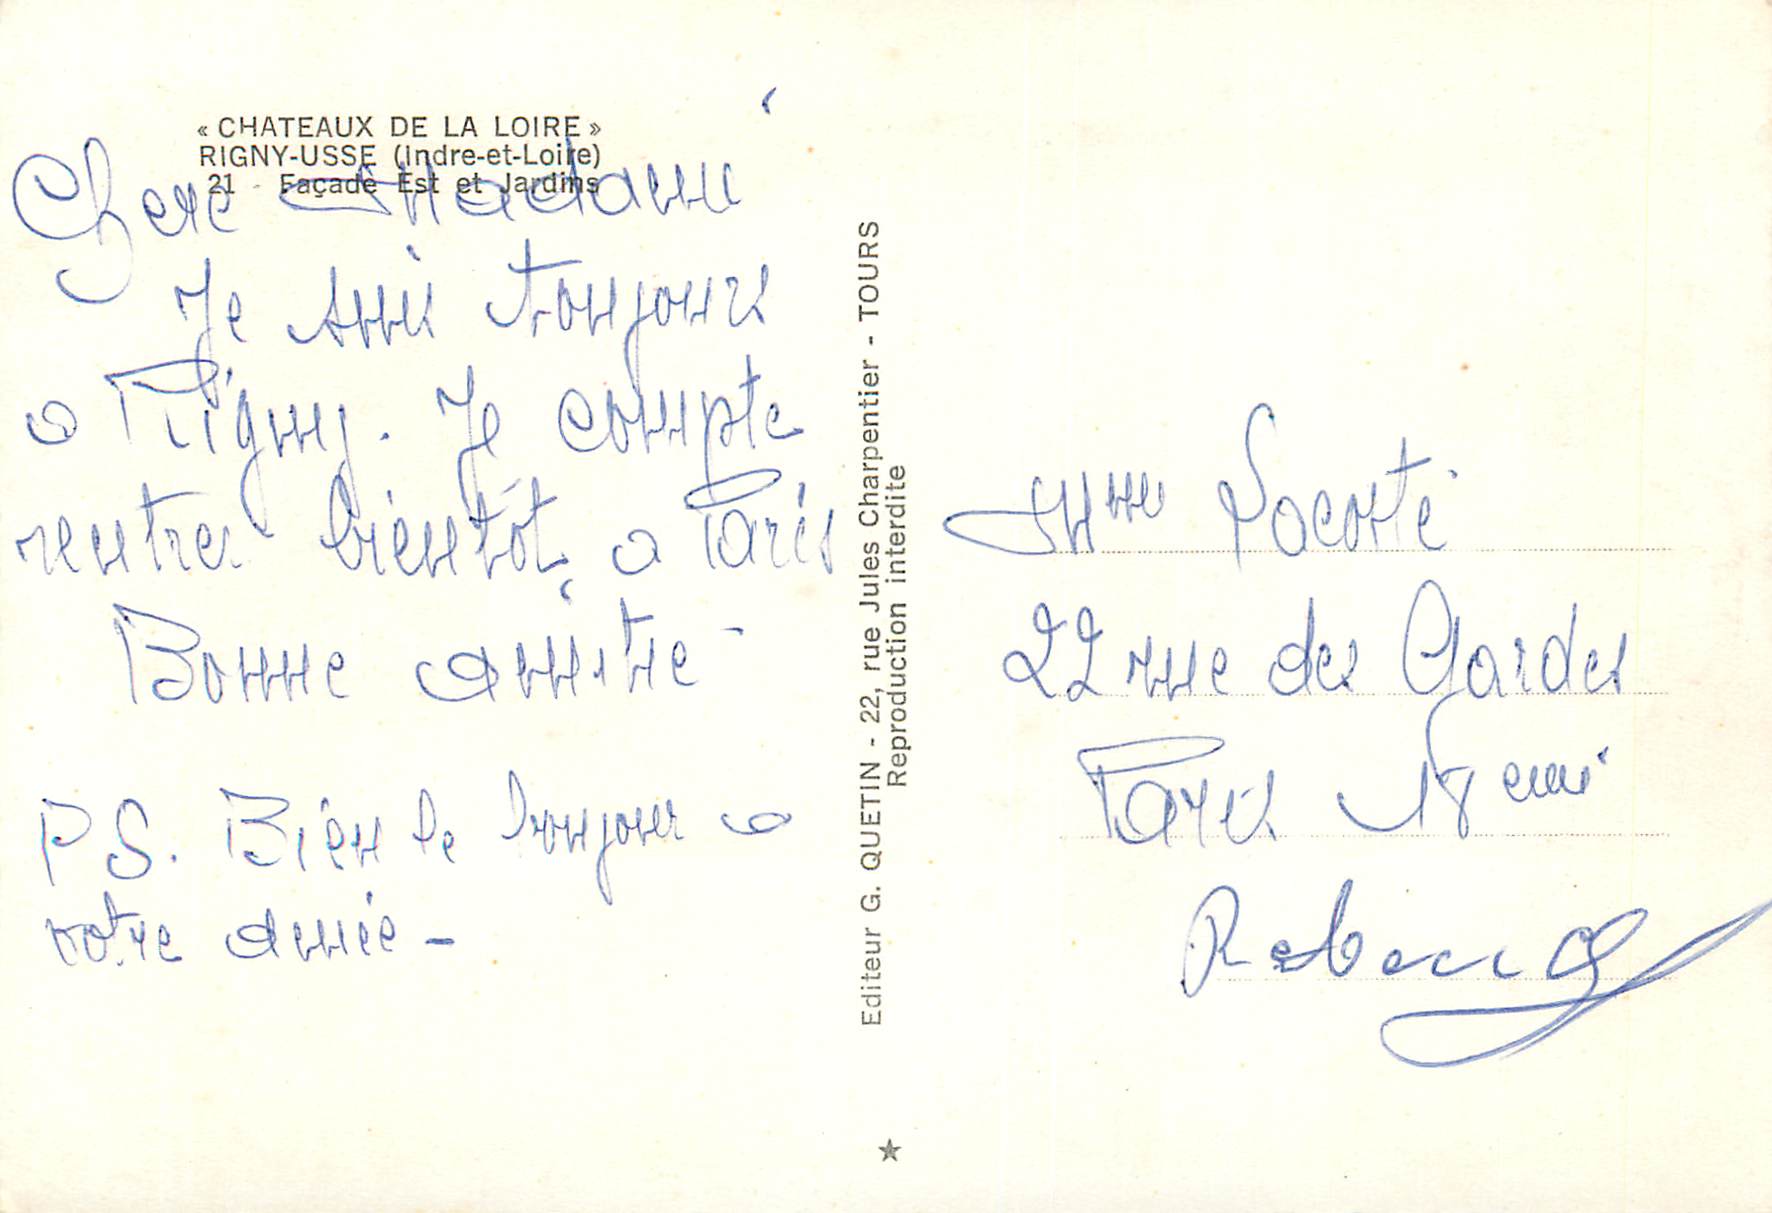 « CHATEAUX DE LA LOIRE »
RIGNY-USSE (Indre-et-Loire)
21 - Façade Est et Jardins
Chere Madame
Je suis toujours
a Rigny. Je compte
rentrer bientôt a Paris
Bonne amitie
PS. Bien le bonjour a
votre amie -
Editeur G. QUETIN - 22, rue Jules Charpentier - TOURS
Reproduction interdite
Mme Lacoste
22 rue des Gardes
Paris 18 eme